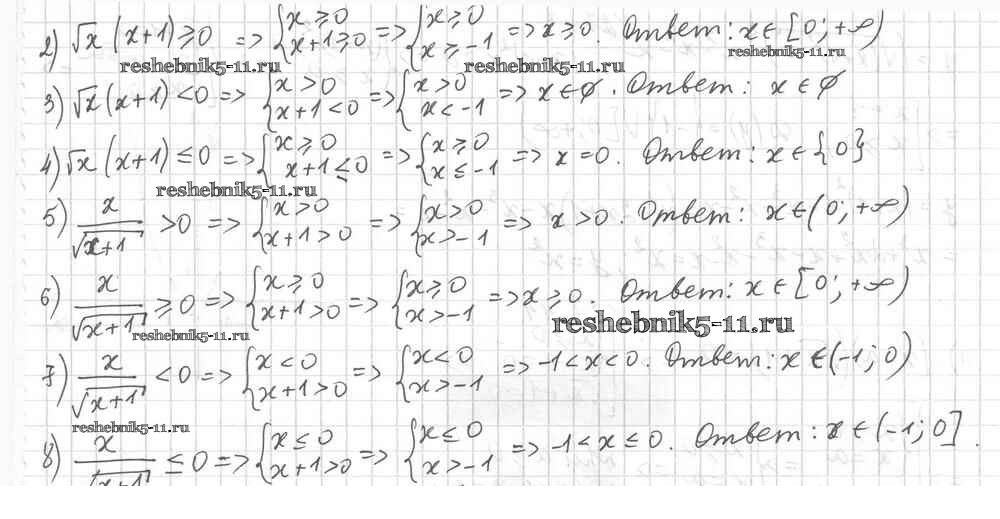 2) √x (x+1) ≥ 0 => {x ≥ 0 x+1 ≥ 0 => {x ≥ 0 x ≥ -1 => x ≥ 0. Ответ: x ∈ [0; +∞)
reshebnik5-11.ru reshebnik5-11.ru reshebnik5-11.ru
3) √x (x+1) < 0 => {x > 0 x+1 < 0 => {x > 0 x < -1 => x ∈ ∅. Ответ: x ∈ ∅
4) √x (x+1) ≤ 0 => {x ≥ 0 x+1 ≤ 0 => {x ≥ 0 x ≤ -1 => x = 0. Ответ: x ∈ {0}
reshebnik5-11.ru
5) x/√(x+1) > 0 => {x > 0 x+1 > 0 => {x > 0 x > -1 => x > 0. Ответ: x ∈ (0; +∞)
6) x/√(x+1) ≥ 0 => {x ≥ 0 x+1 > 0 => {x ≥ 0 x > -1 => x ≥ 0. Ответ: x ∈ [0; +∞)
reshebnik5-11.ru reshebnik5-11.ru
7) x/√(x+1) < 0 => {x < 0 x+1 > 0 => {x < 0 x > -1 => -1 < x < 0. Ответ: x ∈ (-1; 0)
reshebnik5-11.ru
8) x/√(x+1) ≤ 0 => {x ≤ 0 x+1 > 0 => {x ≤ 0 x > -1 => -1 < x ≤ 0. Ответ: x ∈ (-1; 0].